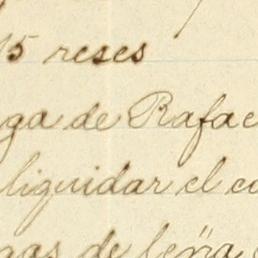 15 reses
ga de Rafae
liquidar el co
gas de leña